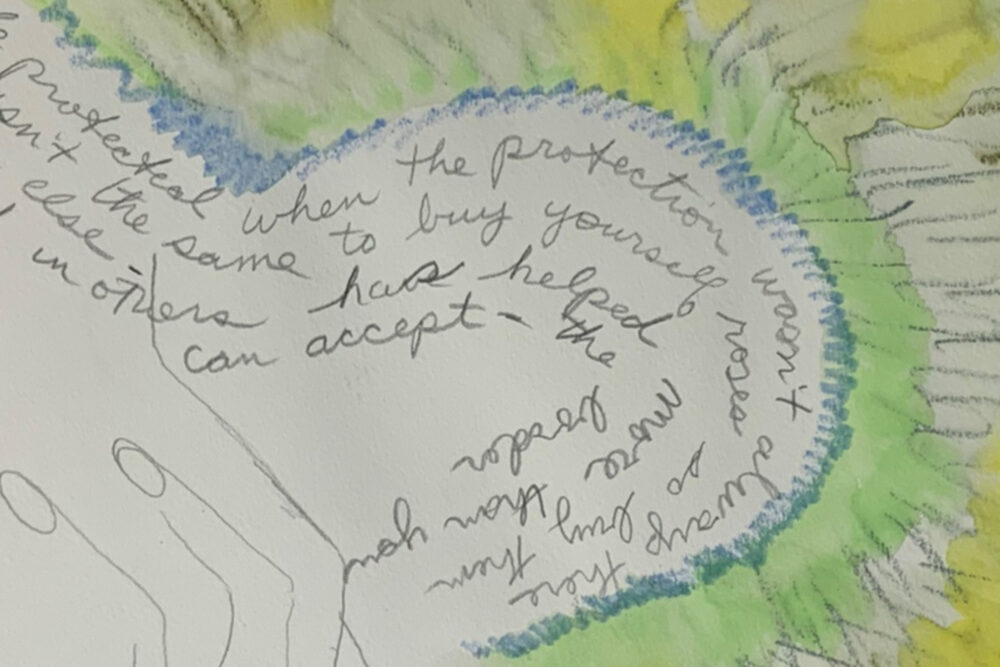 protected when the protection wasn't always there
isn't the same to buy yourself roses so buy them
else
in others has helped more than you
can accept - the